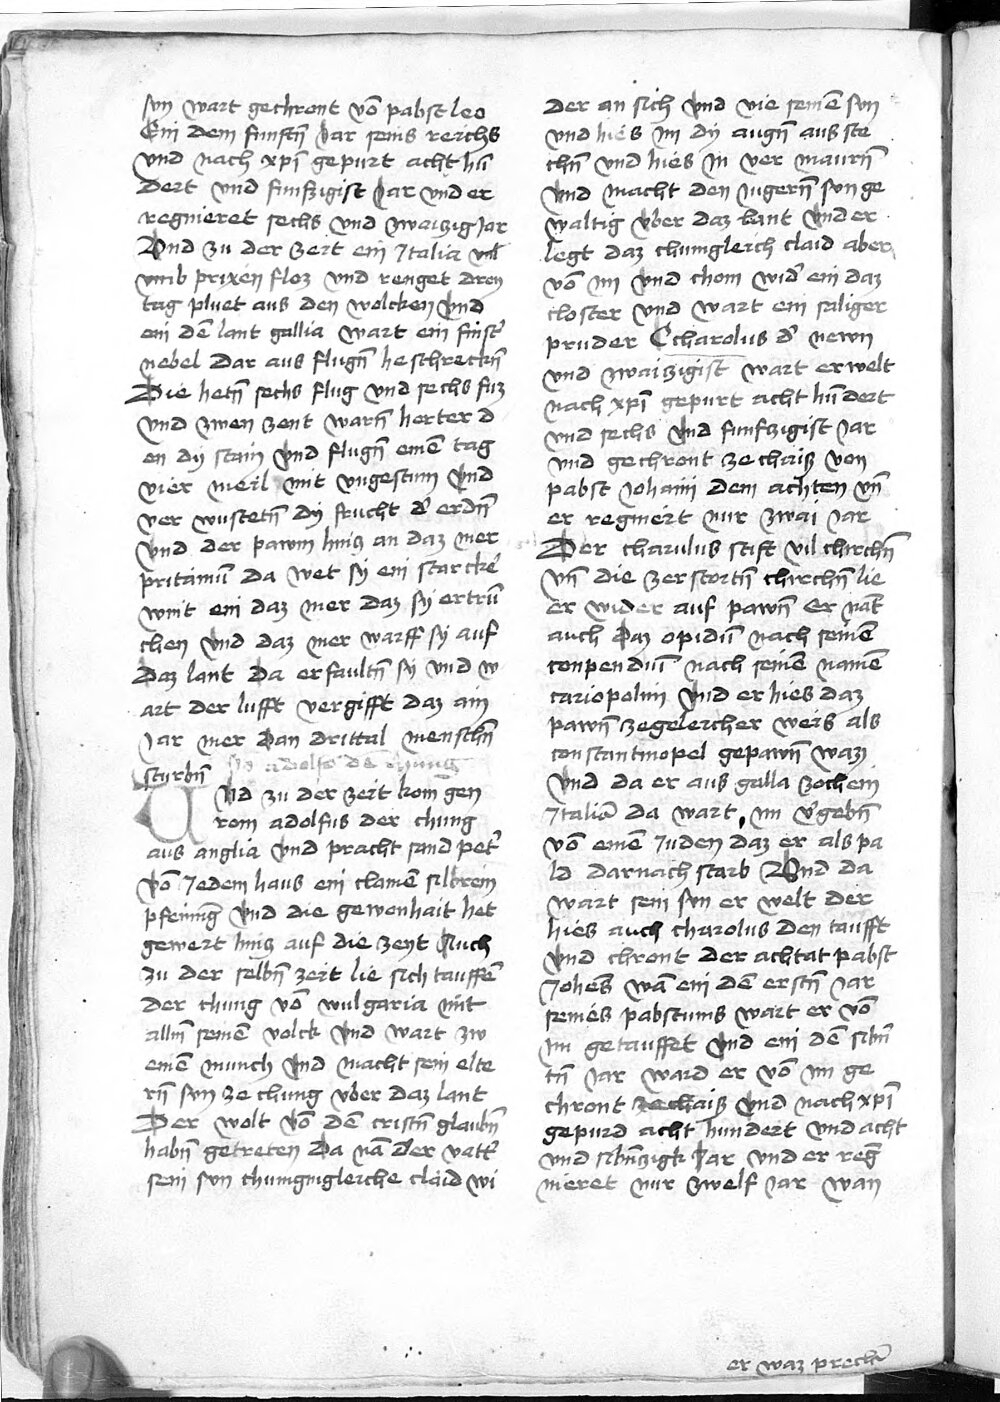 sun wart gechront võ pabst leo
Ein dem funftñ Jar seins reichs
vnd nach xp̃i gepurt acht hũ
dert vnd funfzigist Jar vnd er
regnieret sechs vnd zwaizig Jar
Vnd zu der zeit ein Italia vñ
vmb prixen floz vnd renget dreÿ
tag pluet aus den wolcken vnd
ein dẽ lant gallia wart ein finst̃
nebel dar aus flugñ heschreckñ
Die hetñ sechs flug vnd sechs fuz
vnd zwen zent warñ herter d
en dÿ stain vnd flugñ einẽ tag
vier meil mit vngestum vnd
ver wustetñ dÿ frucht d̃ erdñ
vnd der pawm hinz an daz mer
pritamũ da wet sÿ ein starcke᷑
wint ein daz mer daz sÿ ertrũ
chen vnd daz mer warff sÿ auf
daz lant da erfaultñ sÿ vnd w
art der lufft vergifft daz ain
Jar mer dan drittal menschñ
sturbñ
Und zu der zeit kom gen
rom adolfus der chung
aus anglia vnd pracht sand pet᷑
võ Jedem haus ein clainẽ silbrein
pfening vnd die gewonhait het
gewert hinz auf die zeyt Auch
zu der selbñ zeit lie sich tauffẽ
der chung võ wulgaria mit
allñ seinẽ volck vnd wart zw
einẽ munch vnd macht sein elte
rñ sun ze chung vber daz lant
Der wolt võ dẽ cristñ glaubñ
habñ getreten Da nã der vatt᷑
sein sun chunigngleiche claid wi
der an sich vnd vie seinẽ sun
vnd hies im dÿ augñ aus ste
chñ vnd hies in ver maurñ
vnd macht den Jugerñ sun ge
waltig vber daz lant vnd er
legt daz chungleich claid aber
võ im vnd chom wid᷑ ein daz
closter vnd wart ein saliger
pruder Ccharolus d᷑ newn
vnd zwaizigist wart erwelt
nach xp̃i gepurt acht hũdert
vnd sechs vnd funfzigist Jar
vnd gechront ze chaisz von
pabst Johaiñ dem achten vñ
er regniert nur zwai Jar
Der charulus stift vil chirchñ
vñ die zerstortñ chirchñ lie
er wider auf pawñ Er nãt
auch daz opidũ nach seinẽ
conpendiũ nach seinẽ namẽ
cariopolim vnd er hies daz
pawñ zegeleicher weis als
constantinopel gepawñ waz
vnd da er aus galla zoch ein
Italiã da wart im v᷑gebñ
võ einẽ Juden daz er als pa
ld darnach starb Vnd da
wart sein sun er welt der
hies auch charolus den taufft
vnd chront der achtat pabst
Johẽs wã ein dẽ erstñ Jar
seines pabstums wart er võ
im getauffet vnd ein dẽ sibñ
tñ Jar ward er võ im ge
chront ze chaisz vnd nach xp̃i
gepurd acht hundert vnd acht
vnd sibñzigt Jar vnd er reg̃
nieret nur zwelf Jar wan
er waz prechñ